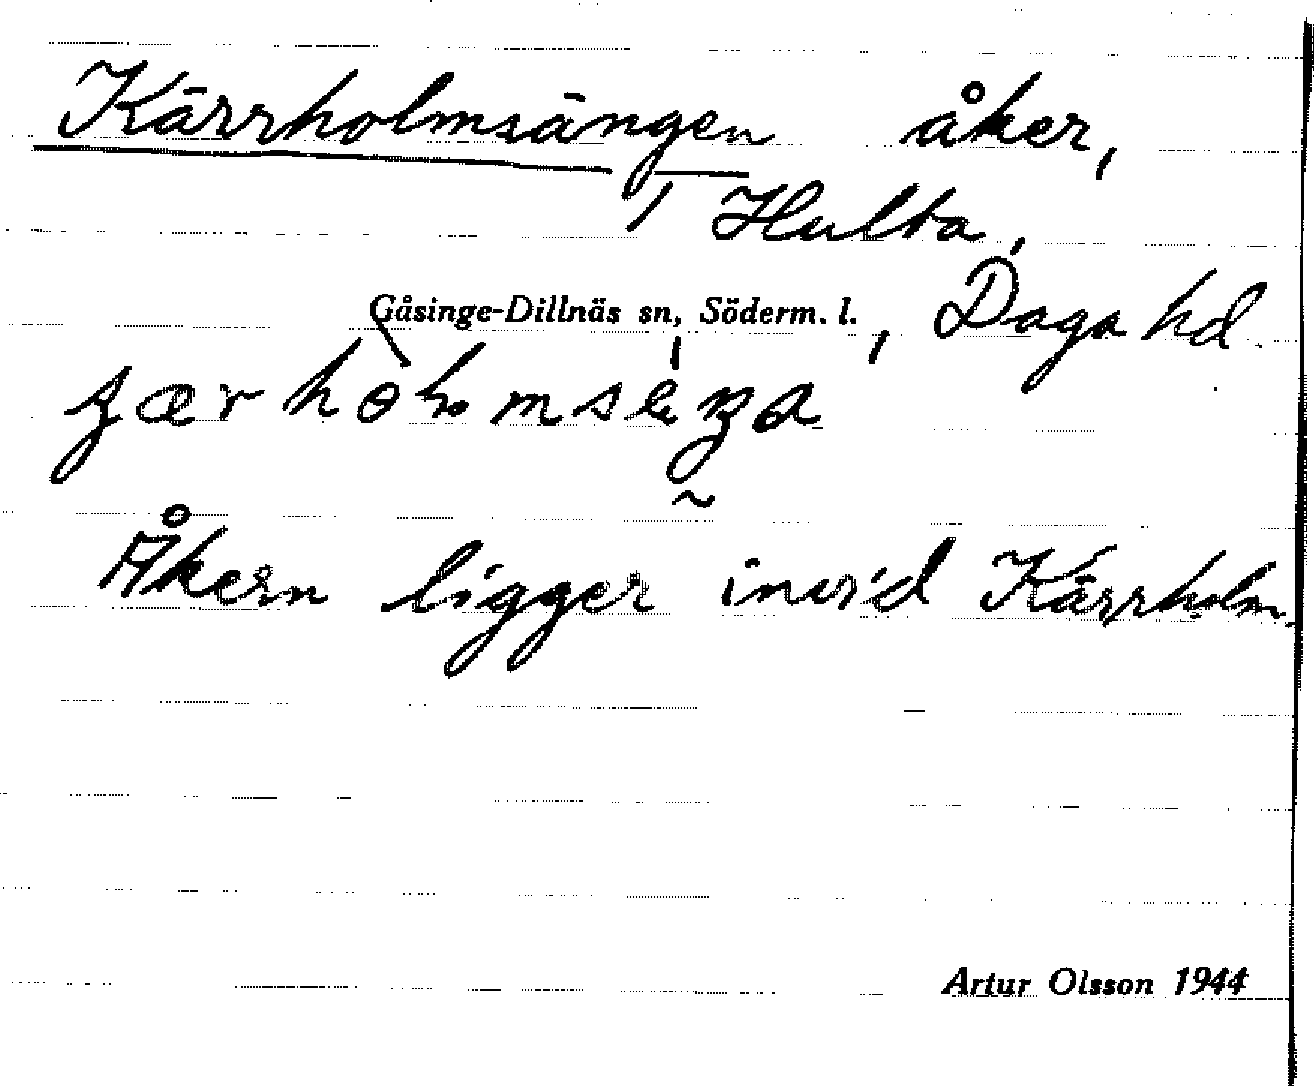 Kärrholmsängen åker,
Hulta,
Gåsinge-Dillnäs sn, Söderm. l., Daga hd
Åkern ligger invid Kärrholm.
Artur Olsson 1944